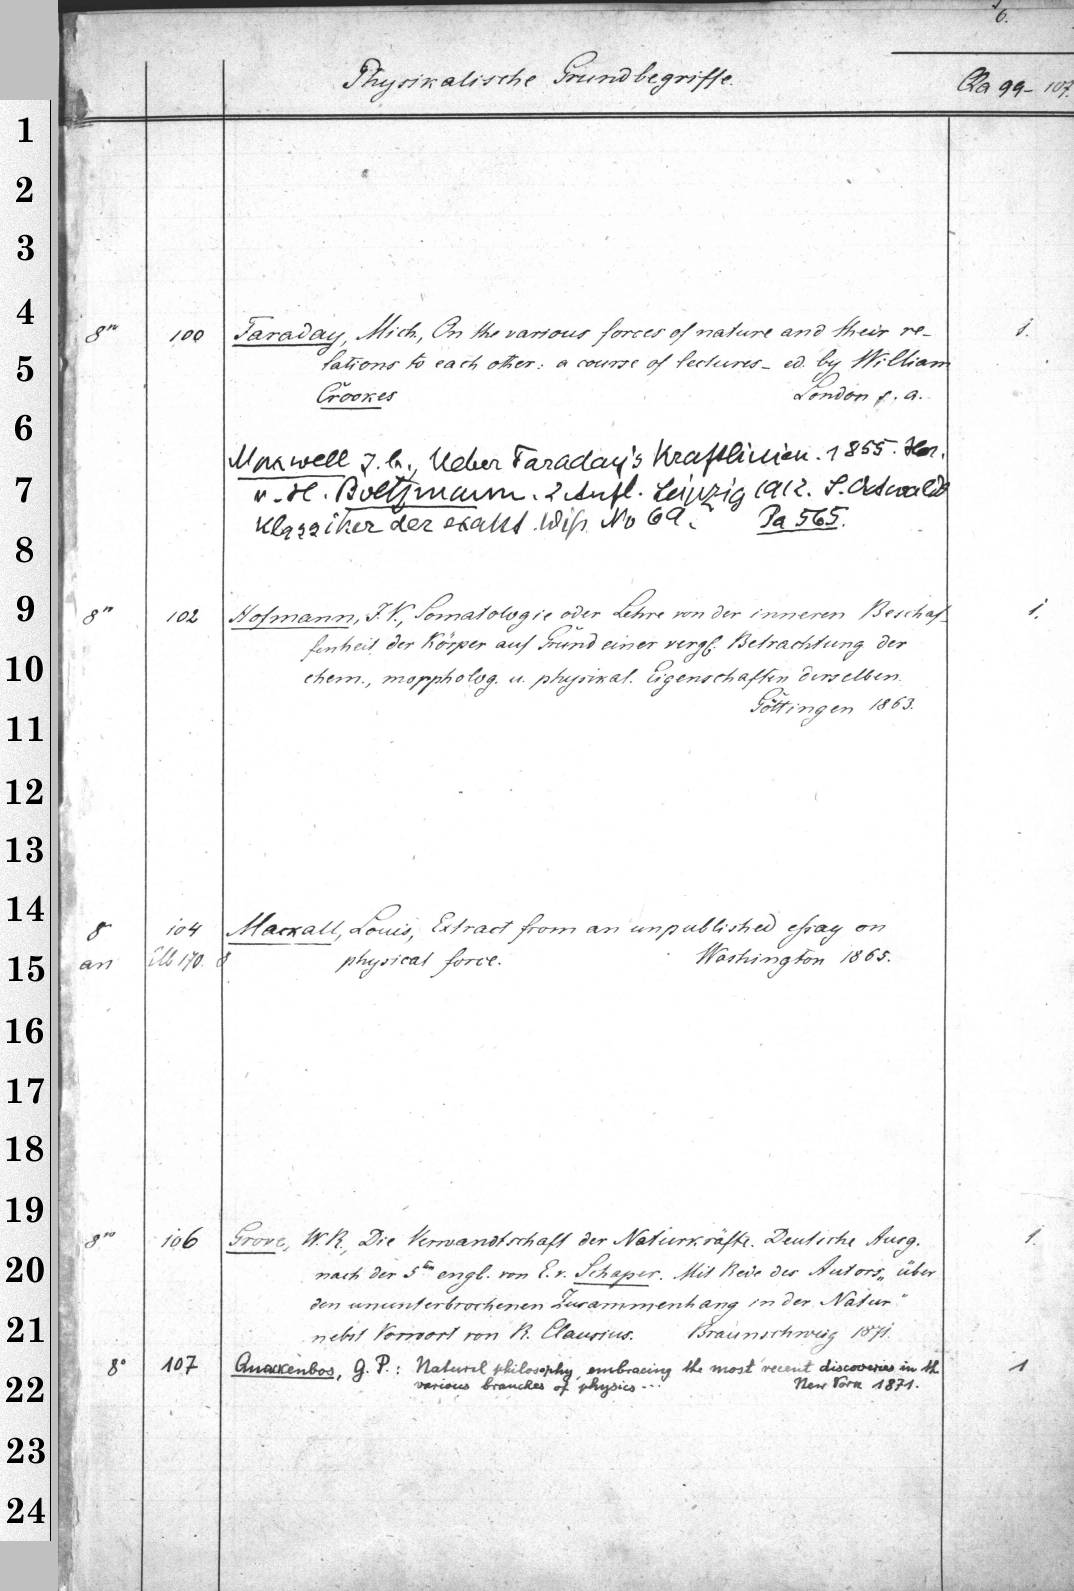 6.
Physikalische Grundbegriffe.
Qa 99-107.
1
2
3
4
8º 100 Faraday, Mich., On the various forces of nature and their re-
1.
5
lations to each other: a course of lectures - ed. by William
6
Crookes London s. a.
Maxwell J. C., Ueber Faraday's Kraftlinien. 1855. Her.
7
v. H. Boltzmann. 2 Aufl. Leipzig 1912. S. Ostwald
Klassiker der exakt. Wiss. No 69. Pa 565.
8
9
8º 102 Hofmann, F. V., Somatologie oder Lehre von der inneren Beschaf-
1.
10
fenheit der Körper auf Grund einer vergl. Betrachtung der
chem., morpholog. u. physikal. Eigenschaften derselben.
11
Göttingen 1863.
12
13
14
8 104 Mackall, Louis, Extract from an unpublished essay on
15
an 170. 8 physical force. Washington 1865.
16
17
18
19
8º 106 Grove, W. R., Die Verwandtschaft der Naturkräfte. Deutsche Ausg.
1.
20
nach der 5ten engl. von E. v. Schaper. Mit Rede des Autors „über
den ununterbrochenen Zusammenhang in der Natur"
21
nebst Vorwort von R. Clausius. Braunschweig 1871.
8º 107 Quackenbos, G. P.: Natural philosophy, embracing the most recent discoveries in the
1
22
various branches of physics... New York 1871.
23
24